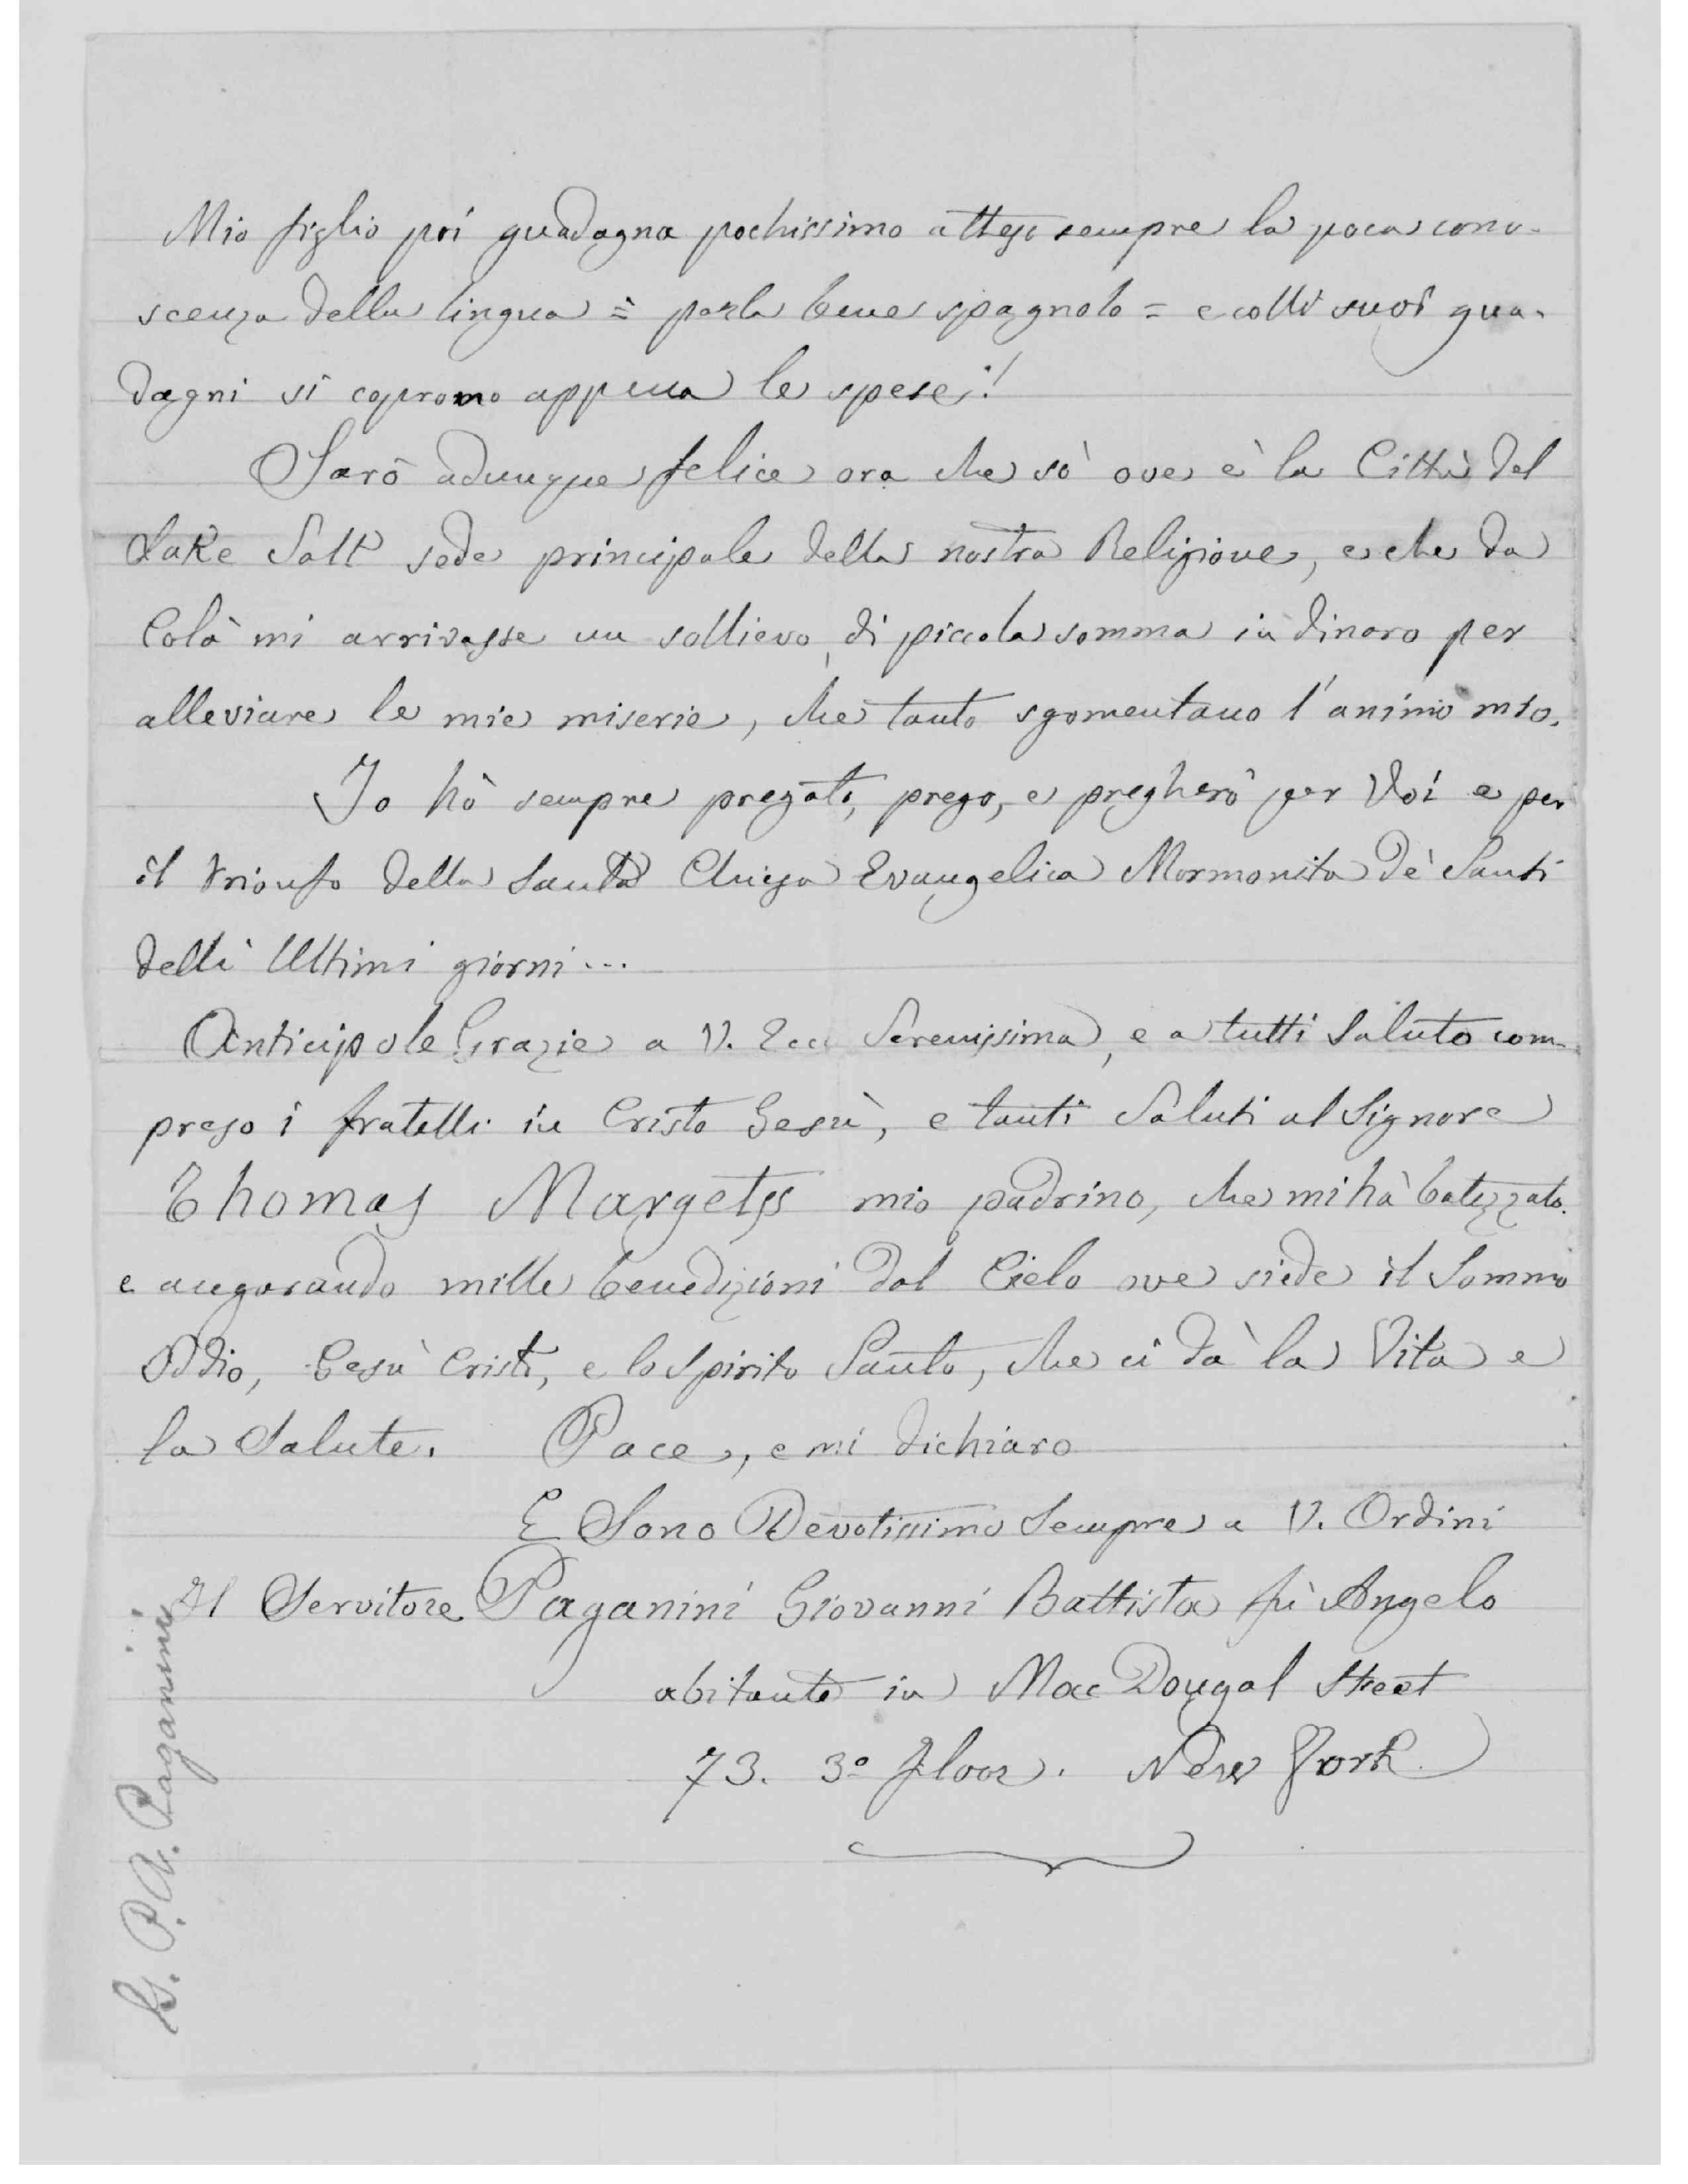 Mio figlio poi guadagna pochissimo atteso sempre la poca cono-
scenza della lingua = parla bene spagnolo = e colli suoi gua-
dagni si coprono appena le spese!
Sarò adunque felice ora che sò ove è la Città del
Lake Salt sede principale della nostra Religione, e che da
Colà mi arrivasse un sollievo, di piccola somma in dinaro per
alleviare le mie miserie, che tanto sgomentano l'animo mio.
Io hò sempre pregato, prego, e pregherò per Voi e per
il trionfo della Santa Chiesa Evangelica Mormonita de' Santi
delli Ultimi giorni...
Anticipole Grazie a V. Ecc Serenissima, e a tutti Saluto com-
preso i fratelli in Cristo Gesù, e tanti Saluti al Signore
Thomas Margetss mio padrino, che mi hà batezzato.
e augorando mille benedizioni dal Cielo ove siede il Sommo
Iddio, Gesù Cristo, e lo Spirito Santo, che ci dà la Vita e
la Salute. Pace, e mi dichiaro
E Sono Devotissimo Sempre a V. Ordini
Il Servitore Paganini Giovanni Battista fù Angelo
abitante in Mac Dougal Street
73. 3º floor. New York.
Paganini